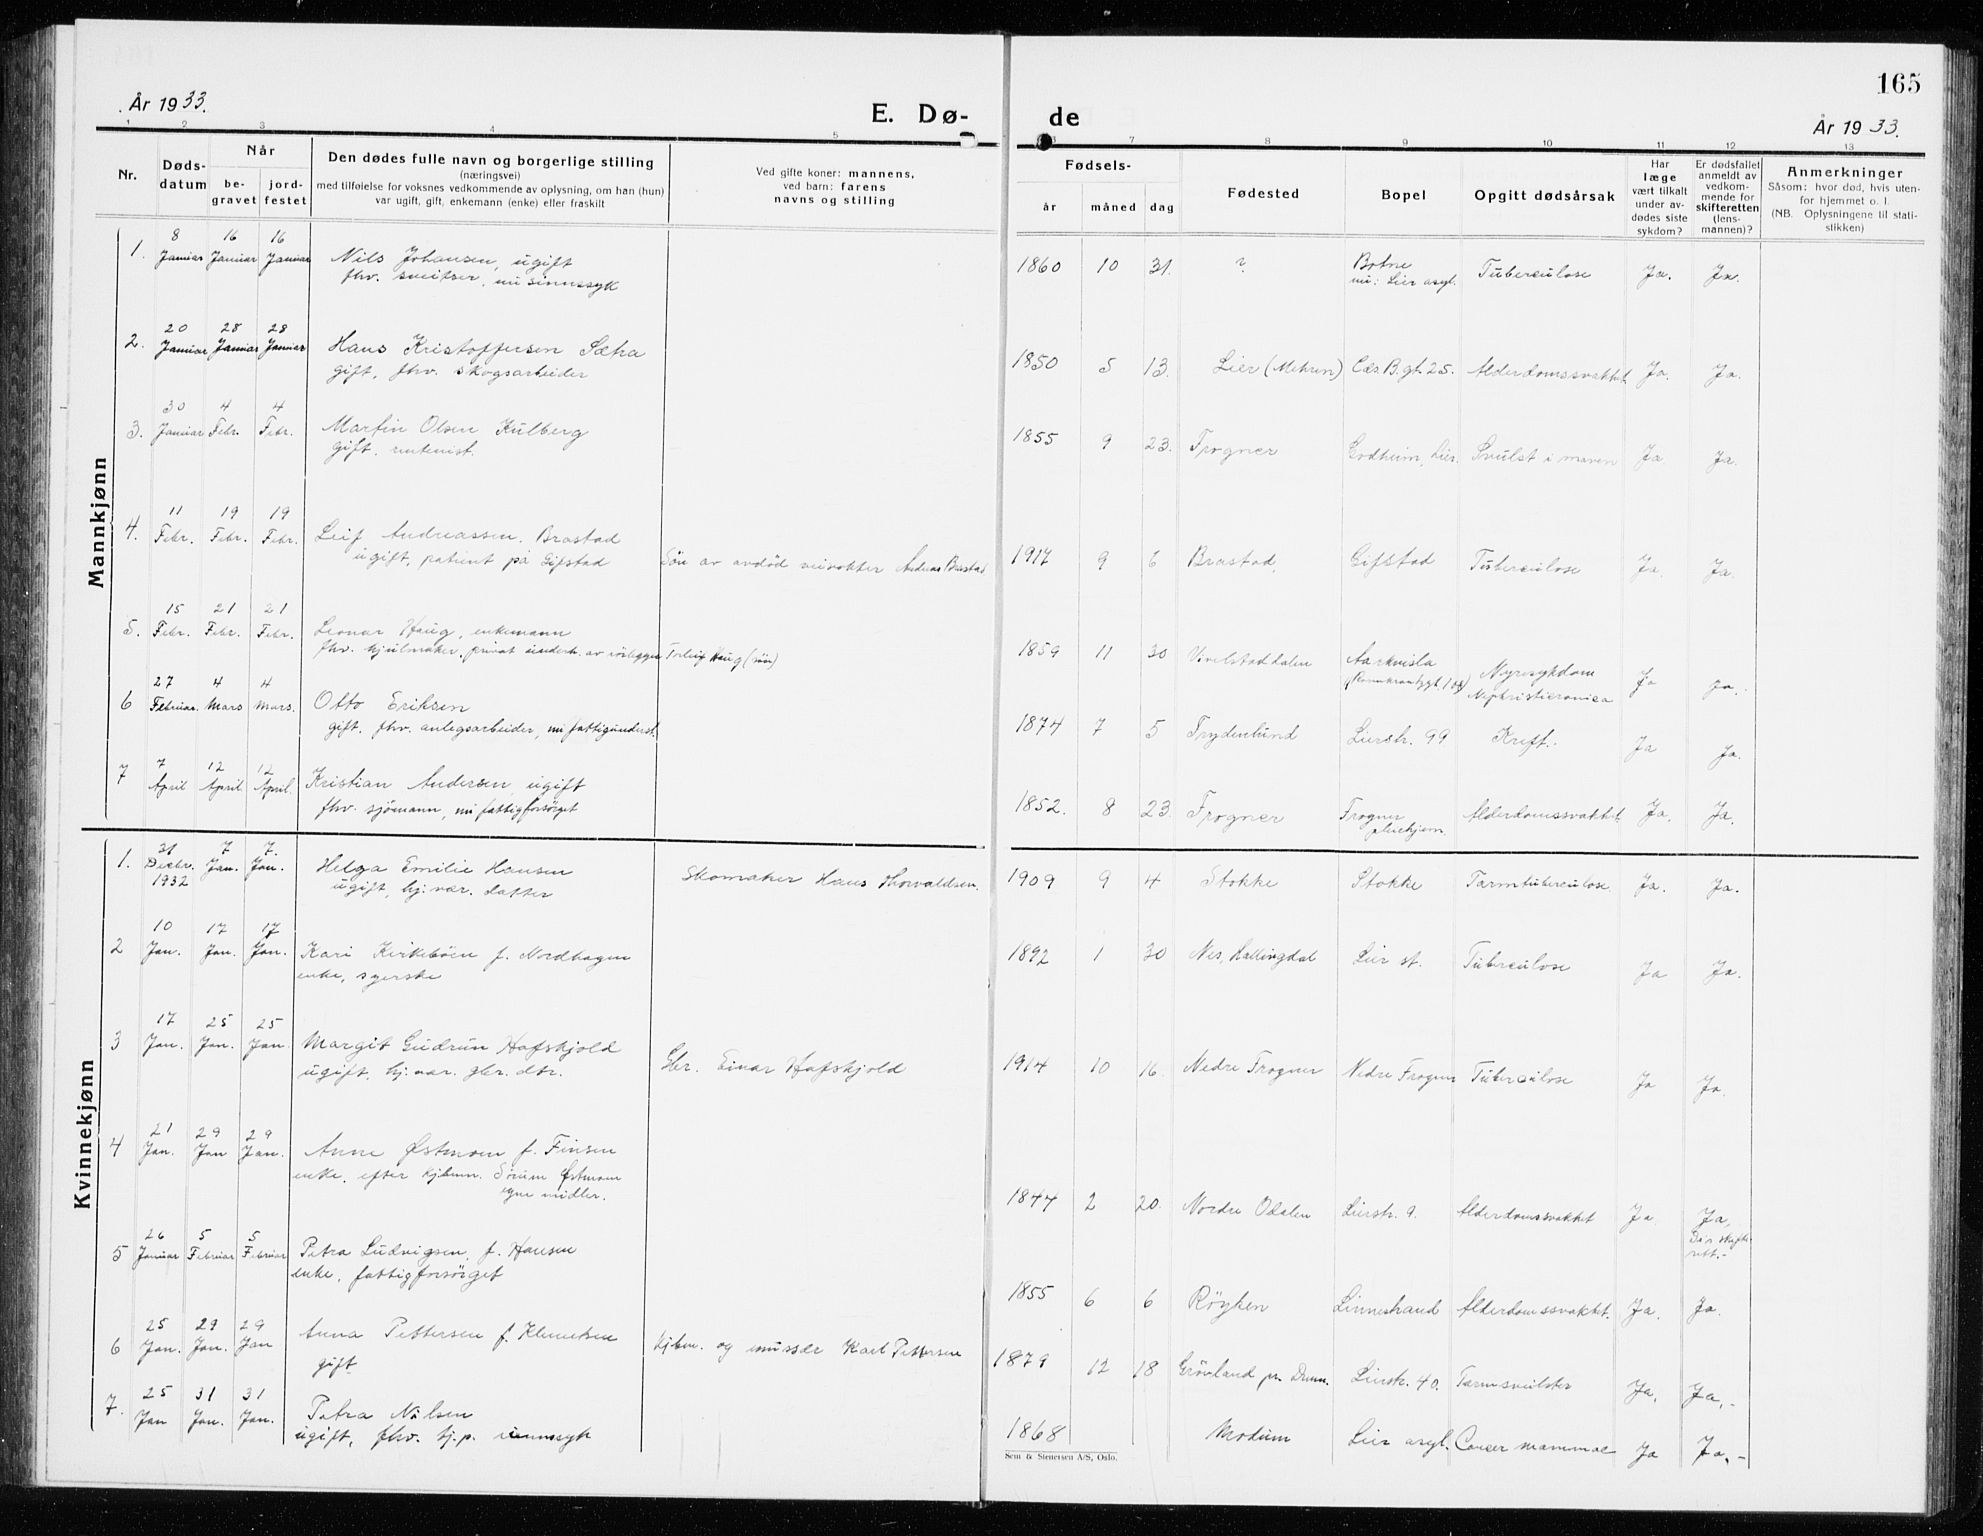 År 1933.
E. Dø-
de
165
År 1933.
1 2 3 4 5
7 8 9 10 11 12 13
Nr.
Døds-
datum
Når
be-
gravet
jord-
festet
Den dødes fulle navn og borgerlige stilling
(næringsvei)
med tilføielse for voksnes vedkommende av oplysning, om han (hun)
var ugift, gift, enkemann (enke) eller fraskilt
Ved gifte koner: mannens,
ved barn: farens
navns og stilling
Fødsels-
år måned dag
Fødested
Bopel
Opgitt dødsårsak
Har
læge
vært tilkalt
under av-
dødes siste
sykdom?
Er dødsfallet
anmeldt av
vedkom-
mende for
skifteretten
(lens-
mannen)?
Anmerkninger
Såsom: hvor død, hvis uten-
for hjemmet o. l.
(NB. Oplysningene til stati-
stikken)
Mannkjønn
8 16 16
1. Januar Januar Januar Nils Johansen, ugift
fhv. sveitser, nu sinnssyk
1860 10 31. ? Botne
nu: Lier asyl. Tuberculose Ja. Ja.
20 28 28
2. Januar Januar Januar Hans Kristoffersen Sætra
gift, fhv. skogsarbeider
1850 5 13. Lier (Mehren) Cas. B. gt. 25. Alderdomssvakhet Ja. Ja.
30 4 4
3. Januar Febr. Febr. Martin Olsen Kulberg
gift. rentenist.
1855 9 23. Frogner Godheim, Lier. Svulst i maven Ja Ja.
11 19 19
4. Febr. Febr. Febr. Leif Andreassen Brastad
ugift, patient på Gifstad Søn av avdød veivokter Andreas Brastad
1917 9 6 Brastad, Gifstad Tuberculose Ja. Ja.
15 21 21
5. Febr. Febr. Febr. Leonar Haug, enkemann
fhv. hjulmaker, privat underh. av rörlegger Torleif Haug (søn)
1859 11 30 Vivelstaddalen Aarkvisla
Nyresykdom
Ja Ja.
27 4 4
6 Februar Mars Mars. Otto Eriksen
gift. fhv. anlegsarbeider, nu fattigunderst.
1874 7 5 Frydenlund Lierstr. 99 Kreft. Ja Ja.
7 12 12
7 April April April. Kristian Andersen, ugift
fhv. sjömann, nu fattigforsørget
1852. 8 23. Frogner Frogner
pleiehjem. Alderdomssvakhet. Ja. Ja.
Kvinnekjønn
31 7 7.
1. Decbr. Jan. Jan. Helga Emilie Hansen
1932 ugift, hj. vær. datter Skomaker Hans Thorvaldsen.
1909 9 4 Stokke Stokke Tarmtuberculose Ja. Ja.
10 17 17
2 Jan. Jan. Jan. Kari Kirkebøen f. Nordhagen
enke, syerske
1892 1 30 Nes, Hallingdal Lier st. Tuberculose Ja Ja.
17 25 25
3 Jan. Jan. Jan. Margit Gudrun Hafskjold
ugift, hj. vær. gbr. dtr. Gbr. Einar Hafskjold
1914 10 16. Nedre Frogner Nedre Frogner Tuberculose Ja Ja.
21 29 29
4 Jan. Jan Jan. Anne Østmoen f. Finsen
enke. efter kjøbm. Sørum Østmoen
egne midler.
1844 2 20. Nordre Odalen Lierstr. 9. Alderdomssvakhet Ja Ja,
Dr's skifte-
rett.-
26 5 5
5 Januar Februar Februar Petra Ludvigsen, f. Hansen
enke, fattigforsørget
1855 6 6 Røyken Linnestrand Alderdomssvakhet. Ja. Ja.
25 29 29
6 Jan. Jan. Jan Anna Pettersen f. Klemetsen
gift Kjbm. og Karl Pettersen
1879 12 18 Grönland pr. Drmn. Lierstr. 40. Tarmsvulster Ja. Ja.-
25 31 31
7. Jan Jan. Jan. Petra Nilsen
ugift, fhv. hj.p. sinnssyk
1868 Modum Lier asyl. Cancer mammae Ja Ja.-
Sem & Stenersen A/S, Oslo.